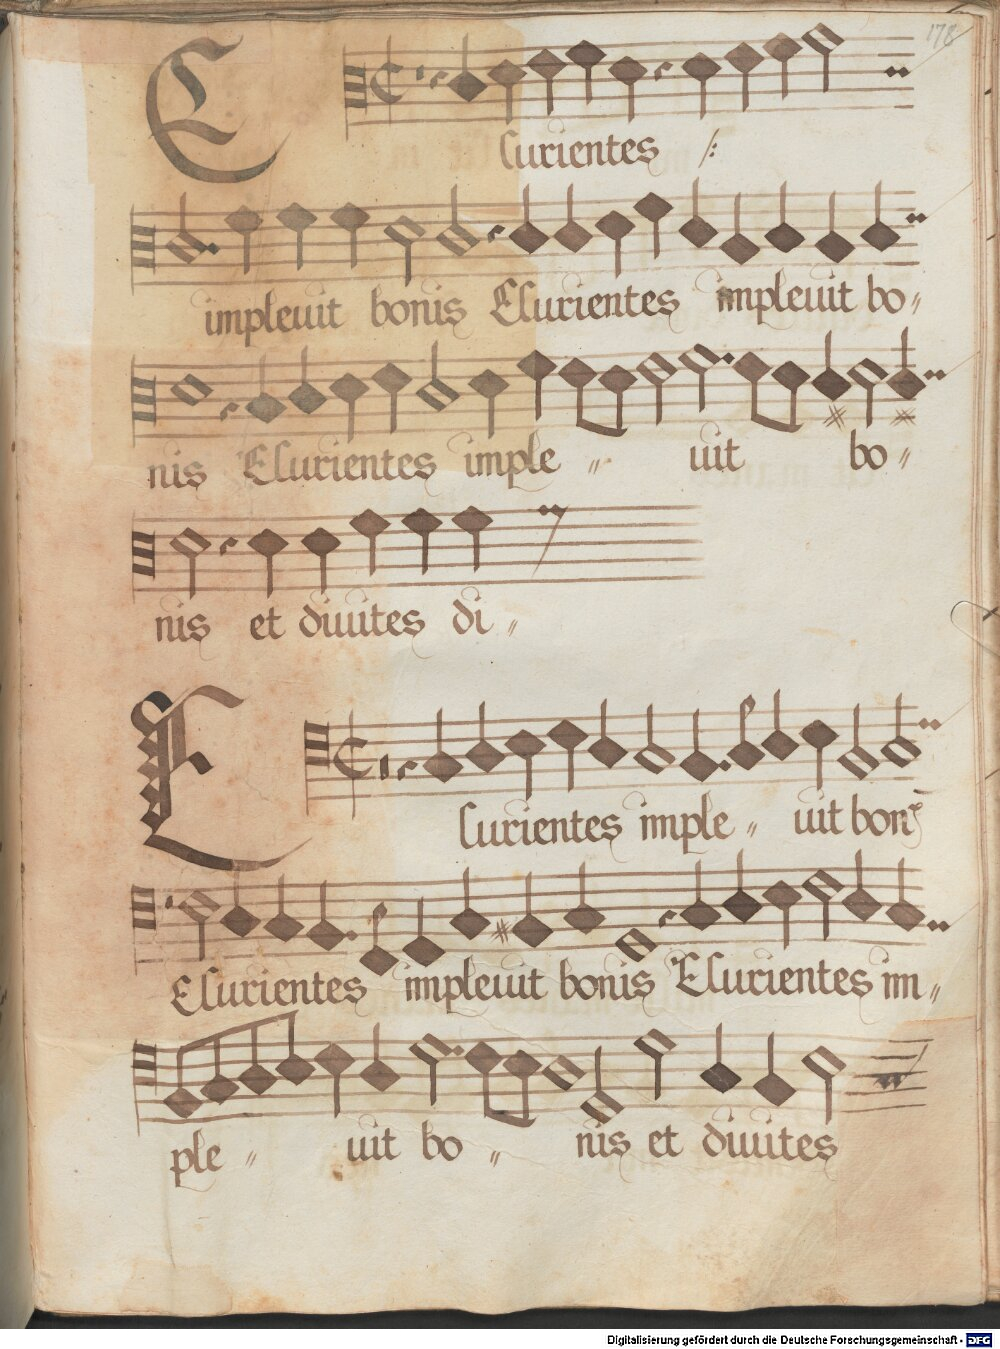 178
Esurientes /:
impleuit bonis Esurientes impleuit bo〃
nis Esurientes imple〃 uit bo〃
nis et diuites di〃
Esurientes imple〃 uit bonis
Esurientes impleuit bonis Esurientes im〃
ple〃 uit bo〃 nis et diuites
Digitalisierung gefördert durch die Deutsche Forschungsgemeinschaft - DFG